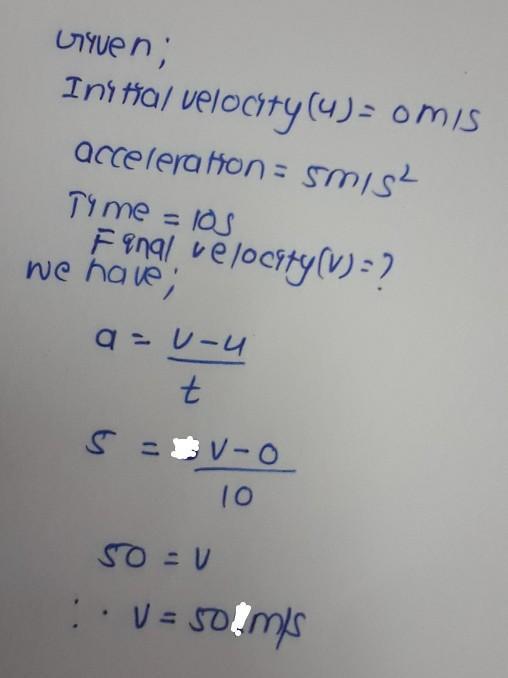 Given;
Initial velocity(u) = 0m/s
acceleration = 5m/s²
Time = 10s
Final velocity(v) = ?
we have;
a = v-u
t
5 = v-0
10
50 = v
∴ v = 50 m/s